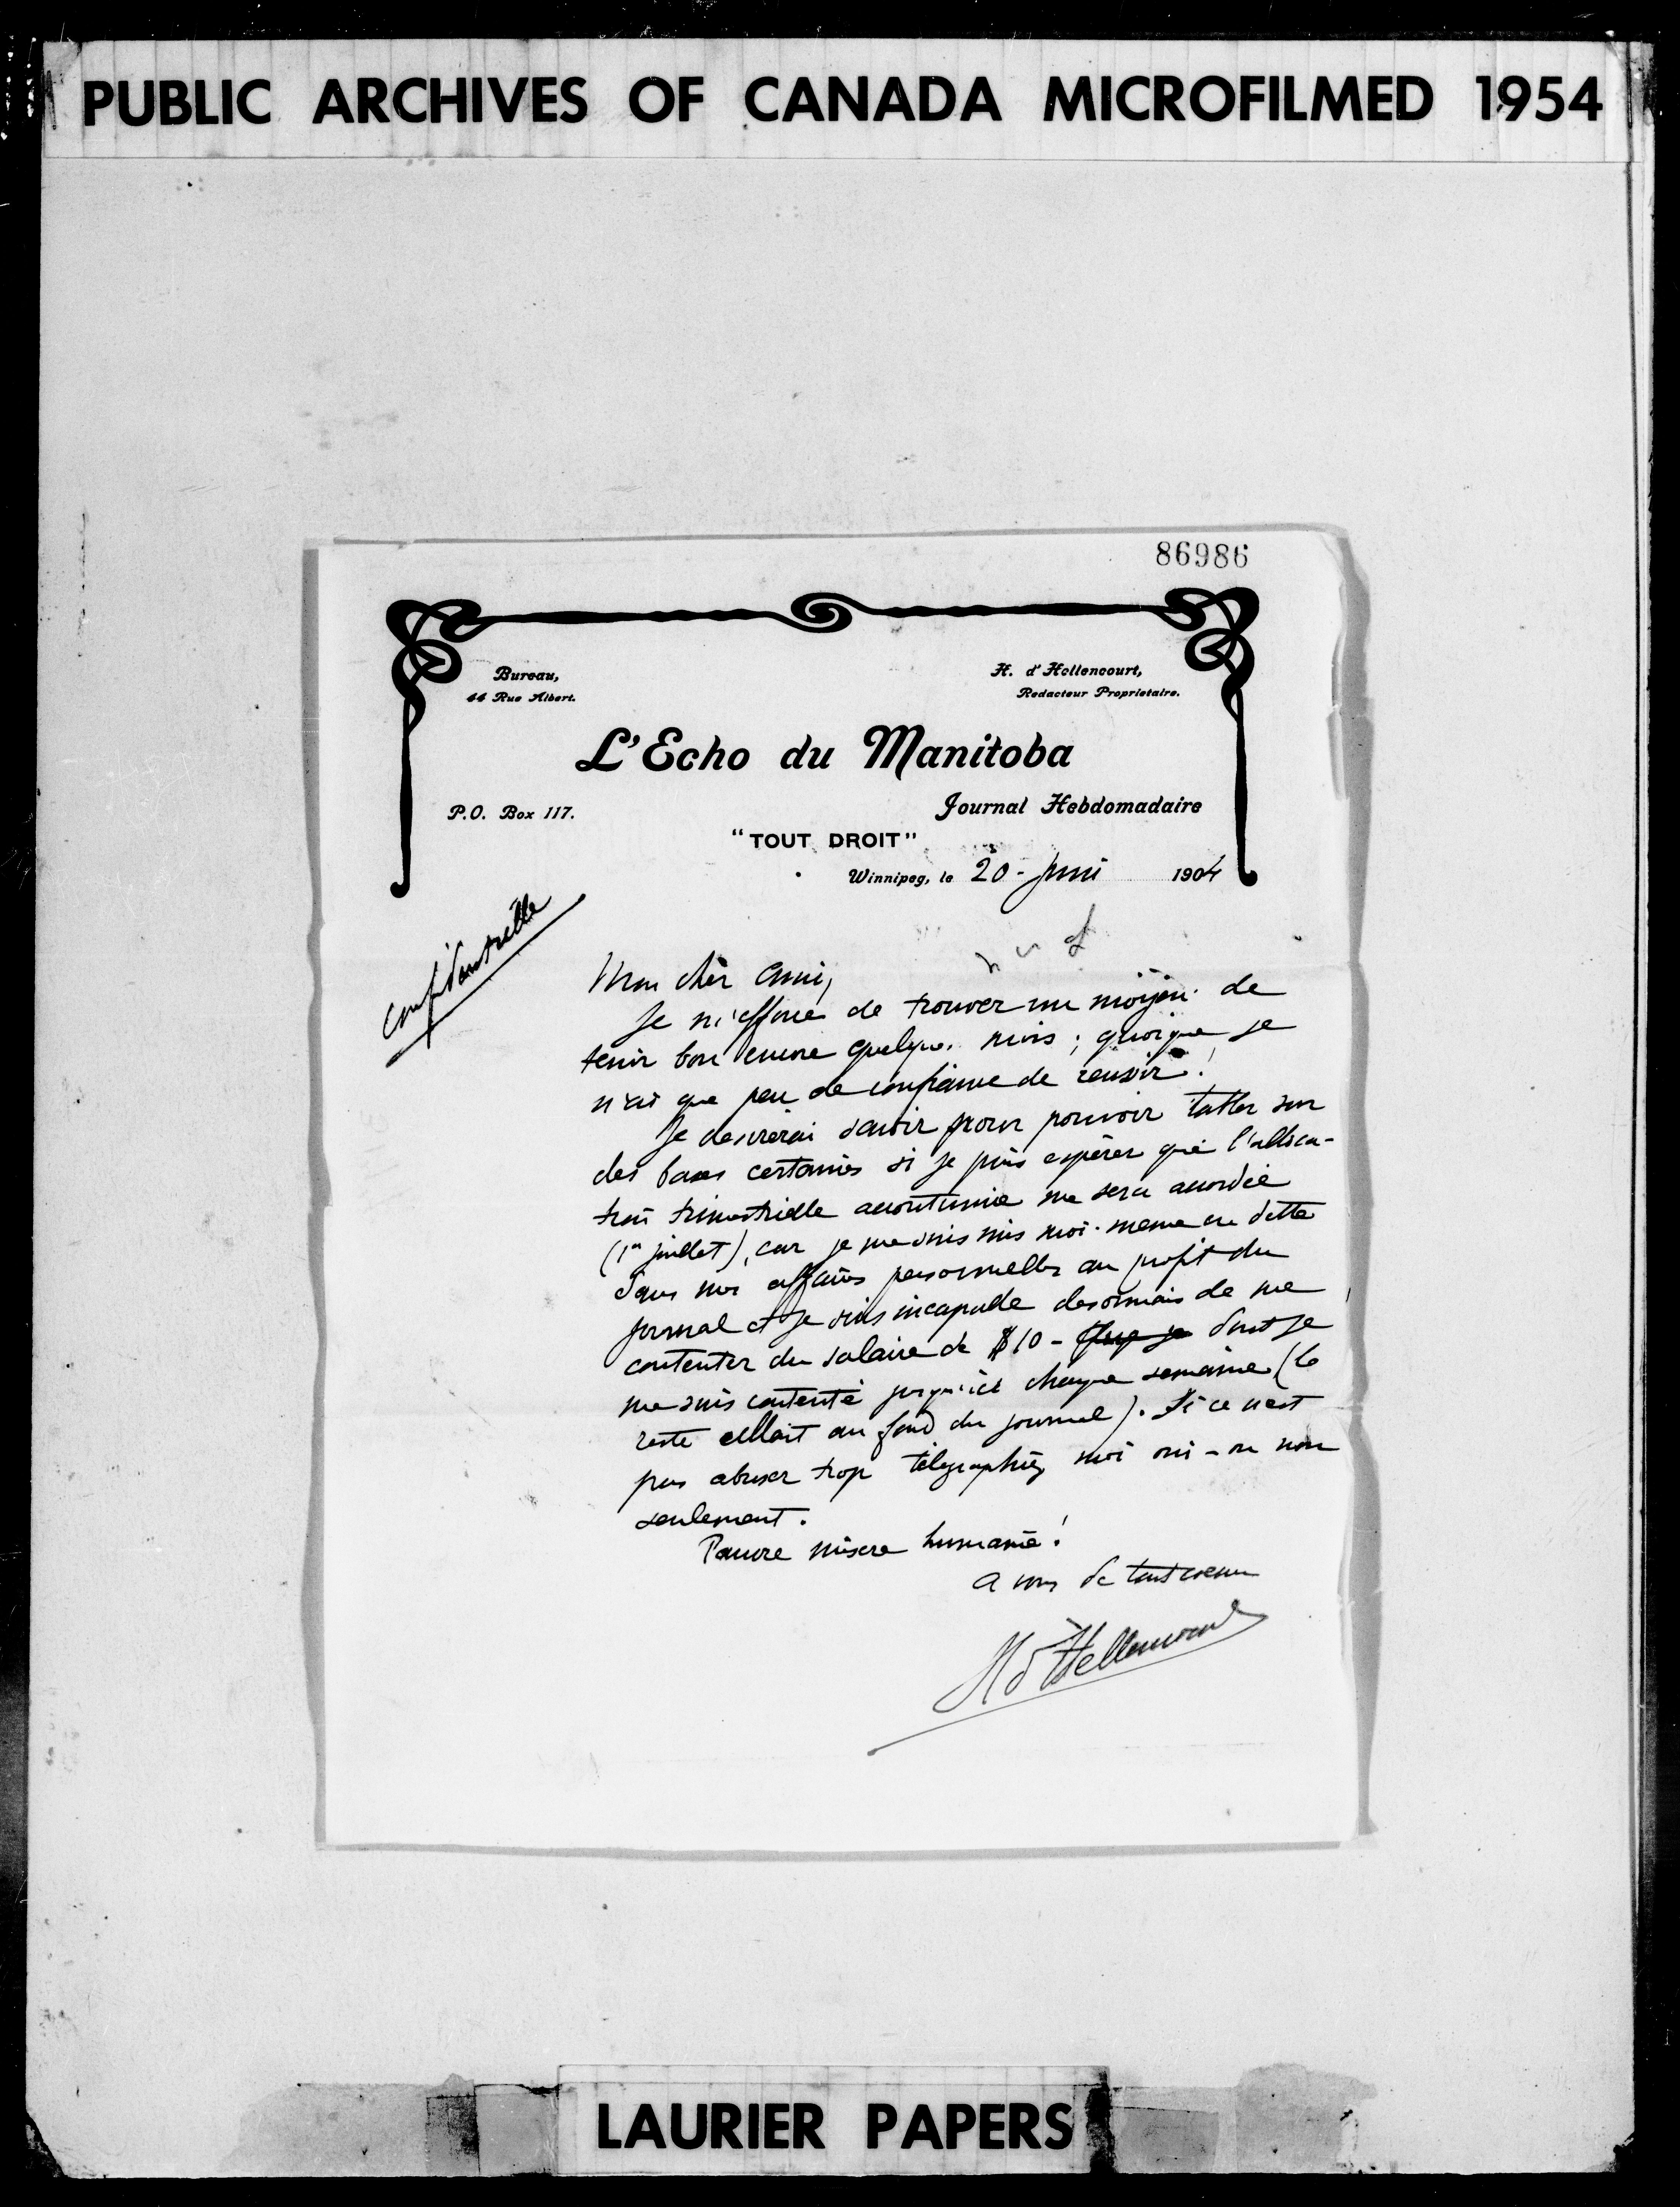 PUBLIC ARCHIVES OF CANADA MICROFILMED 1954
86986
Bureau,
44 Rue Albert.
H. d'Hellencourt,
Redacteur Proprietaire.
L'Echo du Manitoba
P.O. Box 117.
Journal Hebdomadaire
"TOUT DROIT"
Winnipeg, le 20 - Juin 1904
Confidentielle
Mon cher Ami,
Je m'efforce de trouver un moyen de
tenir bon encore quelques mois ; quoique je
n'ai que peu de confiance de reussir !
Je desirerai savoir pour pouvoir tabler sur
des bases certaines si je puis espérer que l'alloca-
tion trimestrielle accoutumée me sera accordée
(1er juillet), car je me suis mis moi-meme en dette
dans mes affaires personnelles au profit du
journal et je suis incapable desormais de me
contenter du salaire de $10 - que je dont je
me suis contenté jusqu'ici chaque semaine (le
reste allait au fond du journal). Si ce n'est
pas abuser trop télégraphiez moi oui - ou non
seulement.
Pauvre misere humaine !
a vous de tout coeur
H d'Hellencourt
LAURIER PAPERS